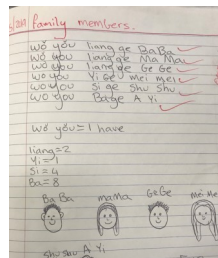 /2019 Family members.
wǒ yǒu liang ge BaBa
wo yǒu liang ge Ma Ma
wo yǒu liang ge Ge Ge
wo you Yi Ge mei mei
wo you Si ge Shu Shu
wo yo Ba ge A Yi
wǒ yǒu = I have
liang = 2
Yi = 1
Si = 4
Ba = 8
Ba Ba mama GeGe mei Mei
Shu Shu A Yi